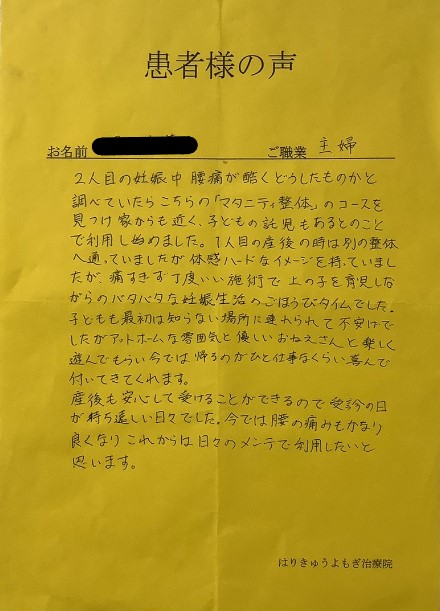 患者様の声
お名前
ご職業 主婦
2人目の妊娠中 腰痛が酷くどうしたものかと
調べていたらこちらの「マタニティ整体」のコースを
見つけ 家からも近く、子どもの託児もあるとのこと
で利用し始めました。1人目の産後の時は別の整体
へ通っていましたが 体感ハードなイメージを持っていまし
たが、痛すぎず丁度いい施術で 上の子を育児しな
がらのバタバタな妊娠生活のごほうびタイムでした。
子どもも最初は知らない場所に連れられて 不安げで
したがアットホームな雰囲気と優しいおねえさんと楽しく
遊んでもらい 今では 帰るのがひと仕事なくらい喜んで
付いてきてくれます。
産後も安心して受けることができるので 受診の日
が待ち遠しい日々でした。今では腰の痛みもかなり
良くなり これからは日々のメンテで利用したいと
思います。
はりきゅうよもぎ治療院